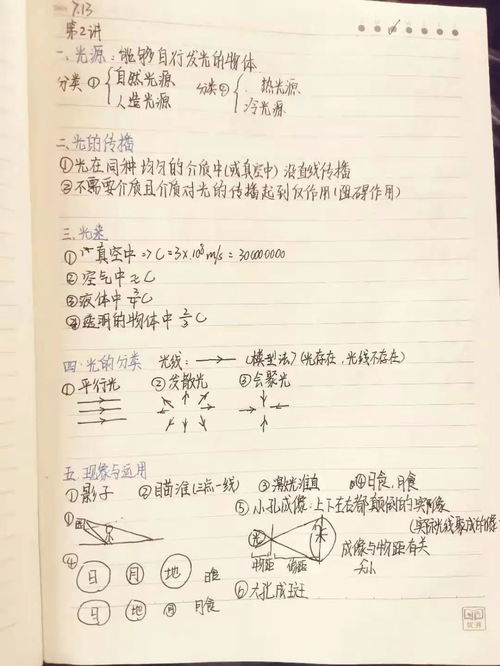 7.13
第2讲
一、光源:能够自行发光的物体
分类① { 自然光源 人造光源 分类② { 热光源 冷光源
二、光的传播
①光在同种均匀的介质中(或真空中)沿直线传播
②不需要介质且介质对光的传播起到反作用(阻碍作用)
三、光速
①真空中 => C=3×10⁸m/s=300000000
②空气中≈C
③液体中 3/4 C
④透明的物体中 2/3 C
四、光的分类 光线: → (模型法)(光存在,光线不存在)
①平行光 ②发散光 ③会聚光
五、现象与运用
①影子 ②瞄准(三点一线) ③激光准直 ④日食,月食
⑤小孔成像:上下左右都颠倒的实像
(实际光线聚成的像)
①
光
物距 像距
成像与物距有关
大小
④ 日 月 地 日食
日 地 月 月食
⑥大孔成斑